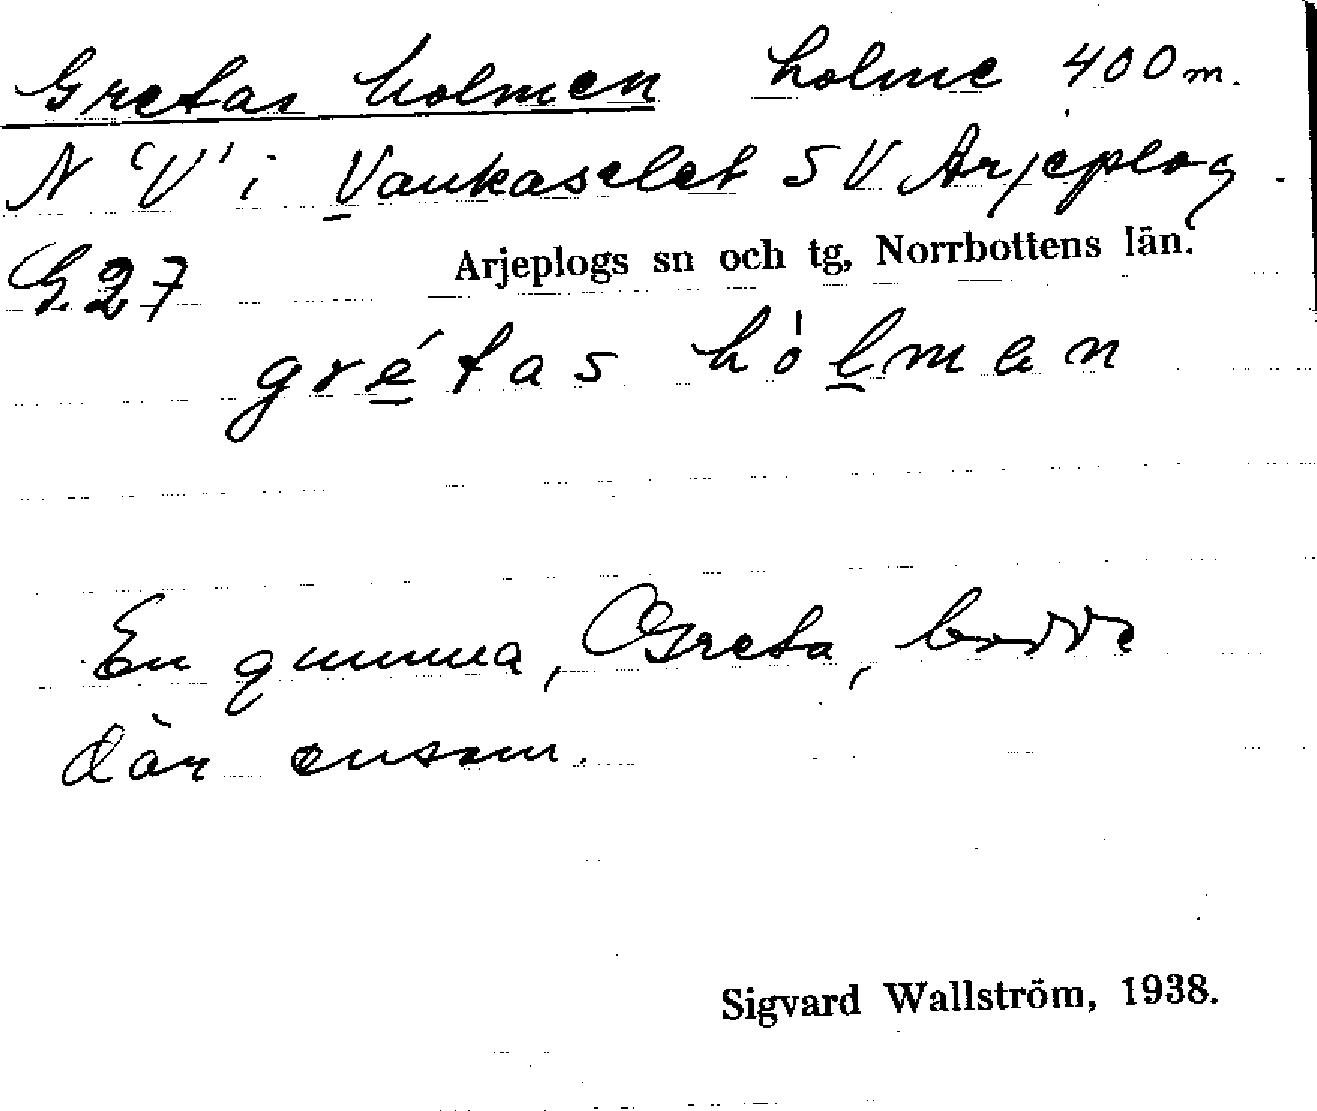 Gretas holmen holme 400 m.
N "V" i Vaukaselet SV Arjeplog.
G27
Arjeplogs sn och tg, Norrbottens län.
gré̱tas hó̱ḻman
En gumma, Greta, bodde
där ensam.
Sigvard Wallström, 1938.